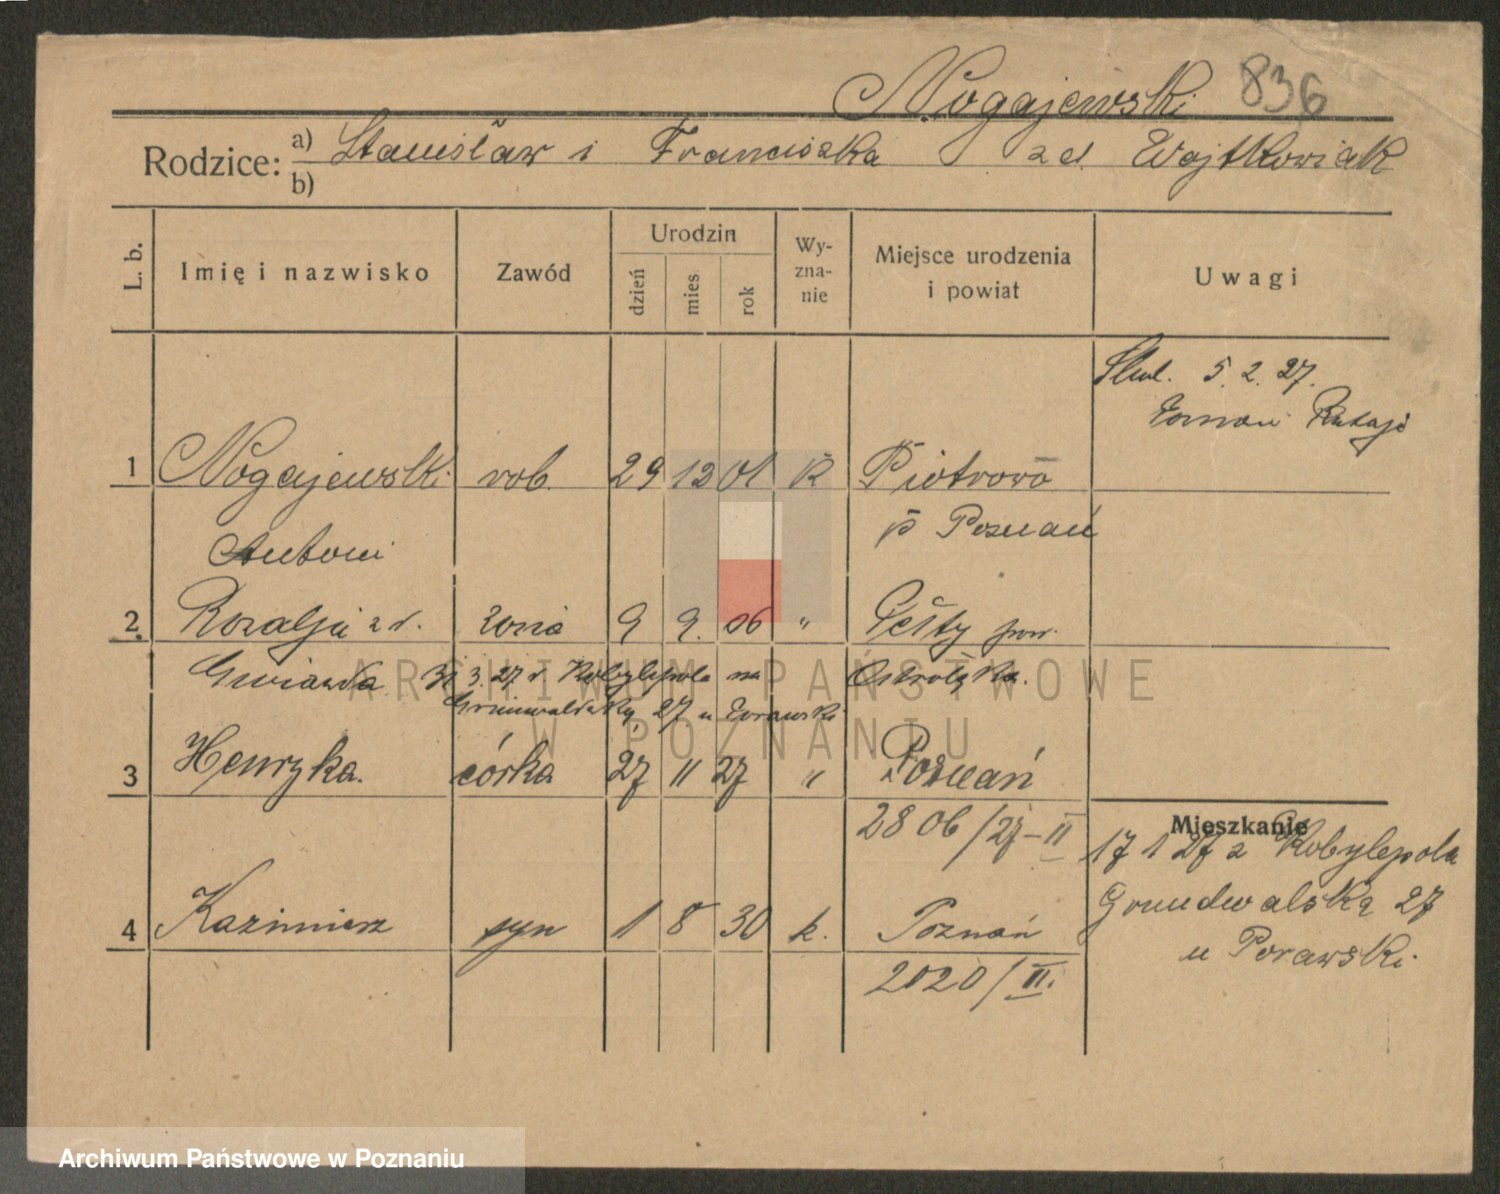 Nogajewski 836
Rodzice: a) Stanisław i Franciszka z d. Wojtkowiak
b)
L. b. Imię i nazwisko Zawód Urodzin dzień mies rok Wyznanie Miejsce urodzenia i powiat Uwagi
5. 2. 27.
1 Nogajewski rob. 29 12 01 k Piotrowo
Antoni p Poznań
2. Rozalja z d. żona 9 9. 06 " pow.
Gwiazda 3. 27 z Kobylepola na Ostrołęka.
Grunwaldzką 27 u
3 Henryka. córka 27 11 27 " Poznań
2806/27-II
Mieszkanie
17 1 27 z Kobylepola
4 Kazimierz syn 1 8 30 k. Poznań
27
2020/II.
u Porawski.
ARCHIWUM PAŃSTWOWE
W POZNANIU
Archiwum Państwowe w Poznaniu